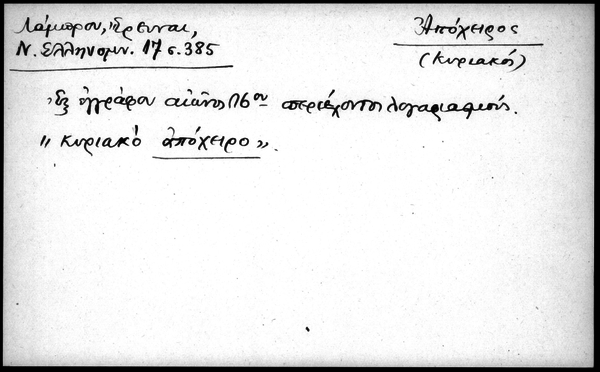 Λάμπρου, Ἔρευναι,
Ν. Ἑλληνομν. 17 σ. 385
Ἀπόχειρος
(Κυριακός)
Ἐξ ἐγγράφου αἰῶνος 16ου περιέχοντος λογαριασμούς.
"Κυριακὸ ἀπόχειρο".